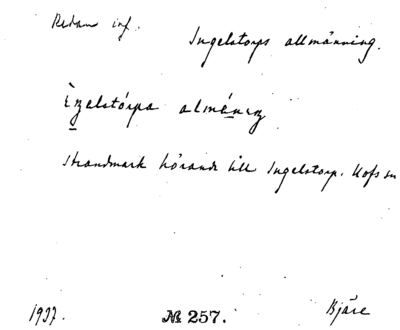 Redan inf.
Ingelstorps allmänning.
Èŋelstórpa alménıŋ
Strandmark hörande till Ingelstorp. Kofs
1937.
№ 257.
Bjäre